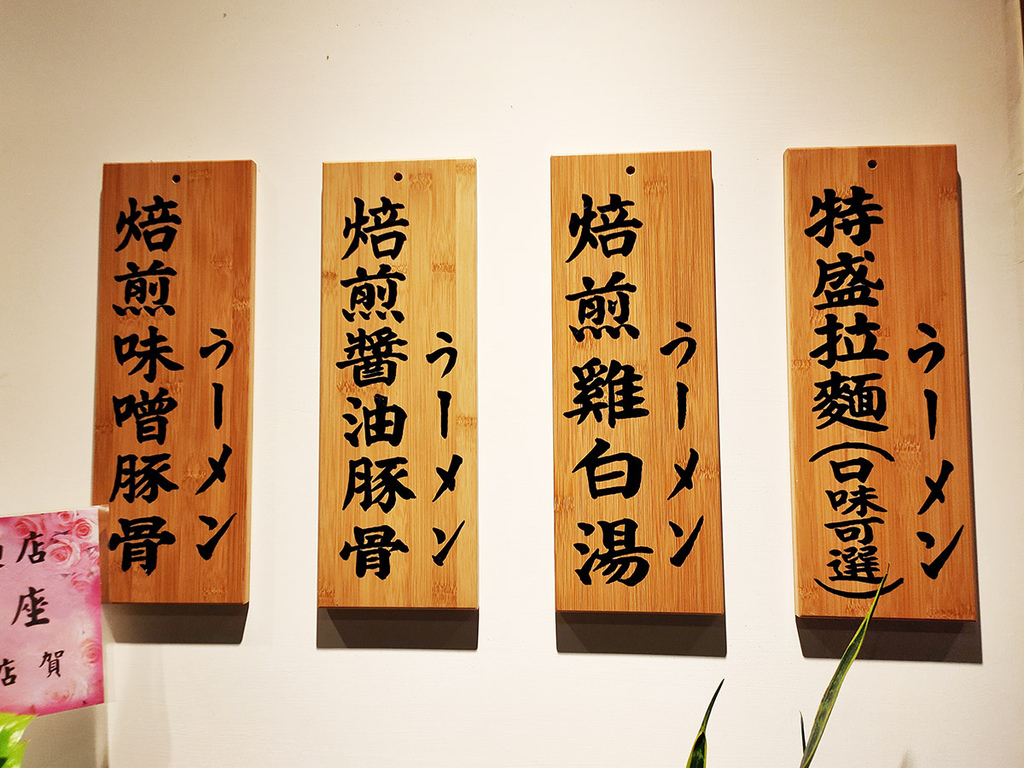 焙煎味噌豚骨
うーメン
焙煎醬油豚骨
うーメン
焙煎雞白湯
うーメン
特盛拉麵(口味可選)
うーメン
店
座
店賀